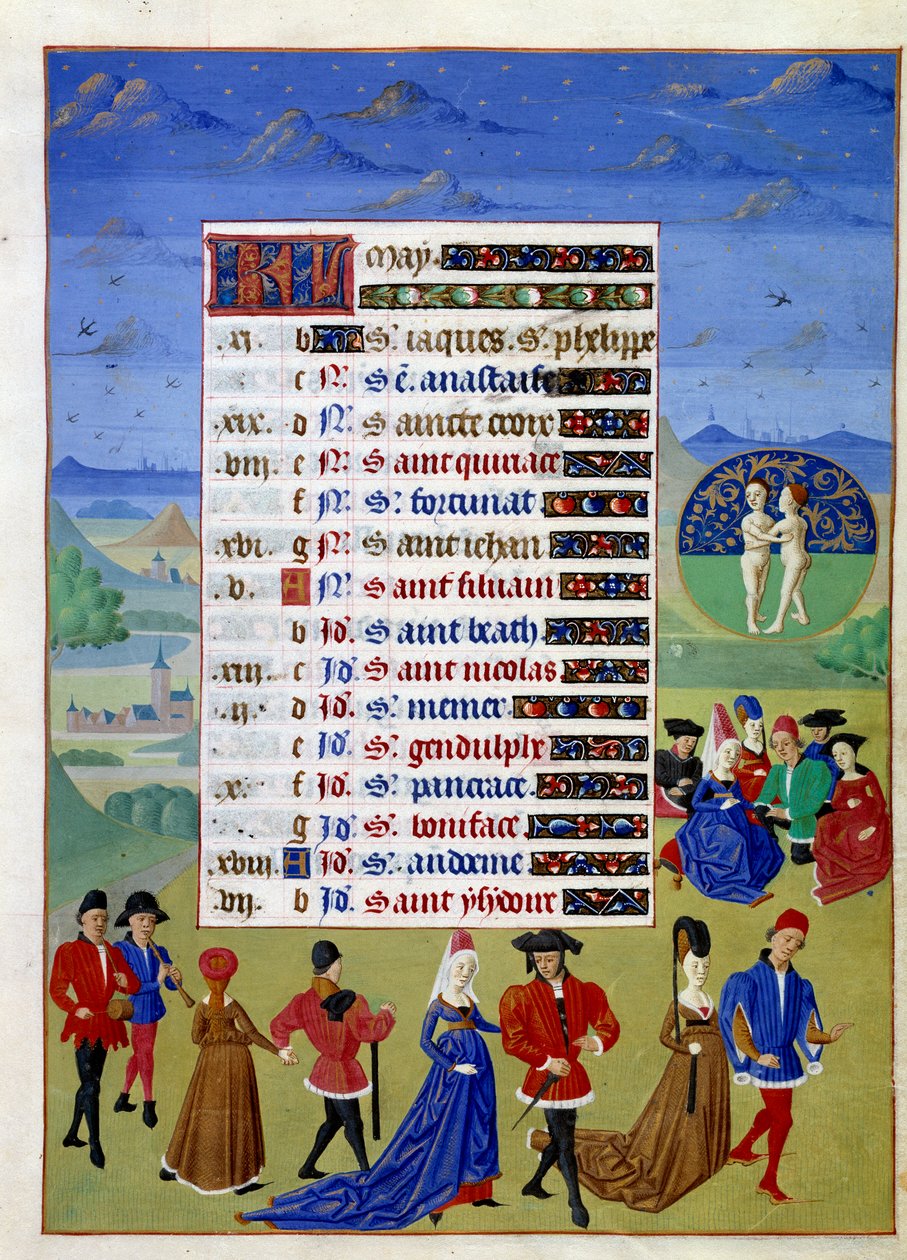 KL May.
.xi. b S. iaques. S. phelippe
c N. S e. anastaise
.xix. d N. Saincte croix
.viij. e N. Saint quiriace
f N. S. fortunat
.xvi. g N. Saint iehan
.v. A N. Saint siluain
b Jd. Saint beath
.xiij. c Jd. Saint nicolas
.ij. d Jd. S. memer
e Jd. S. gendulphe
.x. f Jd. S. pancrace.
g Jd. S. boniface
.xviij. A Jd. S. andoxine
.vij. b Jd. Saint ysydoire